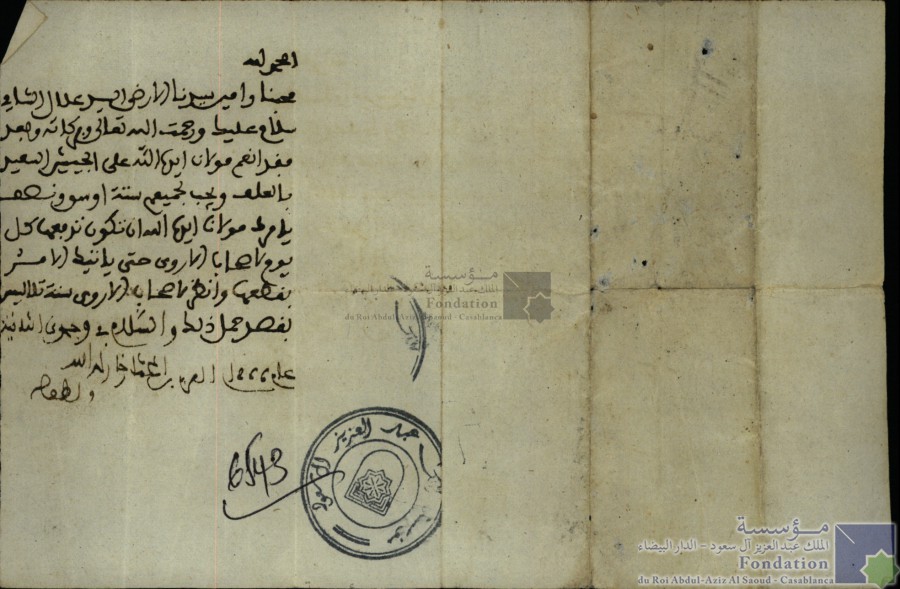 الحمد لله
محبنا وامين سيدنا الارضى السيد علال الشامي
سلام عليك ورحمت الله تعالى وبركاته وبعد
فقد انعم مولانا ايده الله على الجيش السعيد
بالعلف ويجب لجميعهم ستة اوسو ونصف
يامرك مولانا ايده الله ان تكون تدفعها كل
يوم لاصحاب الاروى حتى ياتيك الامر
بقطعها وانظر لاصحاب الاروى ستة تلاليس
بقصد حمل ذلك والسلام في
عام
ولطف به
6543
عبد العزيز
مؤسسة
الملك عبد العزيز آل سعود - الدار البيضاء
Fondation
du Roi Abdul-Aziz Al Saoud - Casablanca
مؤسسة
الملك عبد العزيز آل سعود - الدار البيضاء
Fondation
du Roi Abdul-Aziz Al Saoud - Casablanca